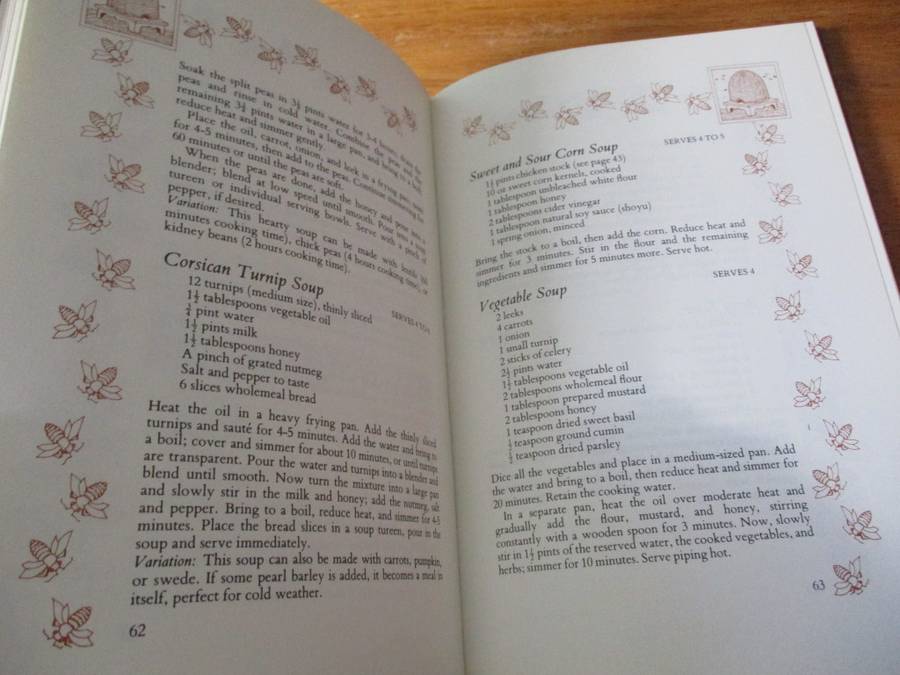 Soak the split peas in 3½ pints water for 3-4 hours; drain the
peas and rinse in cold water. Combine the peas and the
remaining 3½ pints water in a large pan, and bring to a boil;
reduce heat and simmer gently.
Place the oil, carrot, onion, and leek in a frying pan; sauté
for 4-5 minutes, then add to the peas. Continue simmering for
60 minutes or until the peas are soft.
When the peas are done, add the honey and pour into a
blender; blend at low speed until smooth. Pour into a large
tureen or individual serving bowls. Serve with a pinch of
pepper, if desired.
Variation: This hearty soup can be made with lentils (60
minutes cooking time), chick peas (4 hours cooking time), or
kidney beans (2 hours cooking time).
Corsican Turnip Soup
SERVES 4 TO 6
12 turnips (medium size), thinly sliced
1½ tablespoons vegetable oil
pint water
1½ pints milk
1½ tablespoons honey
A pinch of grated nutmeg
Salt and pepper to taste
6 slices wholemeal bread
Heat the oil in a heavy frying pan. Add the thinly sliced
turnips and sauté for 4-5 minutes. Add the water and bring to
a boil; cover and simmer for about 10 minutes, or until turnips
are transparent. Pour the water and turnips into a blender and
blend until smooth. Now turn the mixture into a large pan
and slowly stir in the milk and honey; add the nutmeg, salt
and pepper. Bring to a boil, reduce heat, and simmer for 4-5
minutes. Place the bread slices in a soup tureen, pour in the
soup and serve immediately.
Variation: This soup can also be made with carrots, pumpkin,
or swede. If some pearl barley is added, it becomes a meal in
itself, perfect for cold weather.
62
Sweet and Sour Corn Soup
SERVES 4 TO 5
1½ pints chicken stock (see page 43)
10 oz sweet corn kernels, cooked
1 tablespoon unbleached white flour
1 tablespoon honey
2 tablespoons cider vinegar
1 tablespoon natural soy sauce (shoyu)
1 spring onion, minced
Bring the stock to a boil, then add the corn. Reduce heat and
simmer for 3 minutes. Stir in the flour and the remaining
ingredients and simmer for 5 minutes more. Serve hot.
Vegetable Soup
SERVES 4
2 leeks
4 carrots
1 onion
1 small turnip
2 sticks of celery
2½ pints water
1½ tablespoons vegetable oil
2 tablespoons wholemeal flour
1 tablespoon prepared mustard
2 tablespoons honey
1 teaspoon dried sweet basil
teaspoon ground cumin
teaspoon dried parsley
Dice all the vegetables and place in a medium-sized pan. Add
the water and bring to a boil, then reduce heat and simmer for
20 minutes. Retain the cooking water.
In a separate pan, heat the oil over moderate heat and
gradually add the flour, mustard, and honey, stirring
constantly with a wooden spoon for 3 minutes. Now, slowly
stir in 1½ pints of the reserved water, the cooked vegetables, and
herbs; simmer for 10 minutes. Serve piping hot.
63